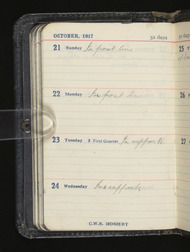 OCTOBER, 1917 31 days
21 Sunday In front line
22 Monday In front
23 Tuesday ☽ First Quarter In supports
24 Wednesday In supports
25
26
27